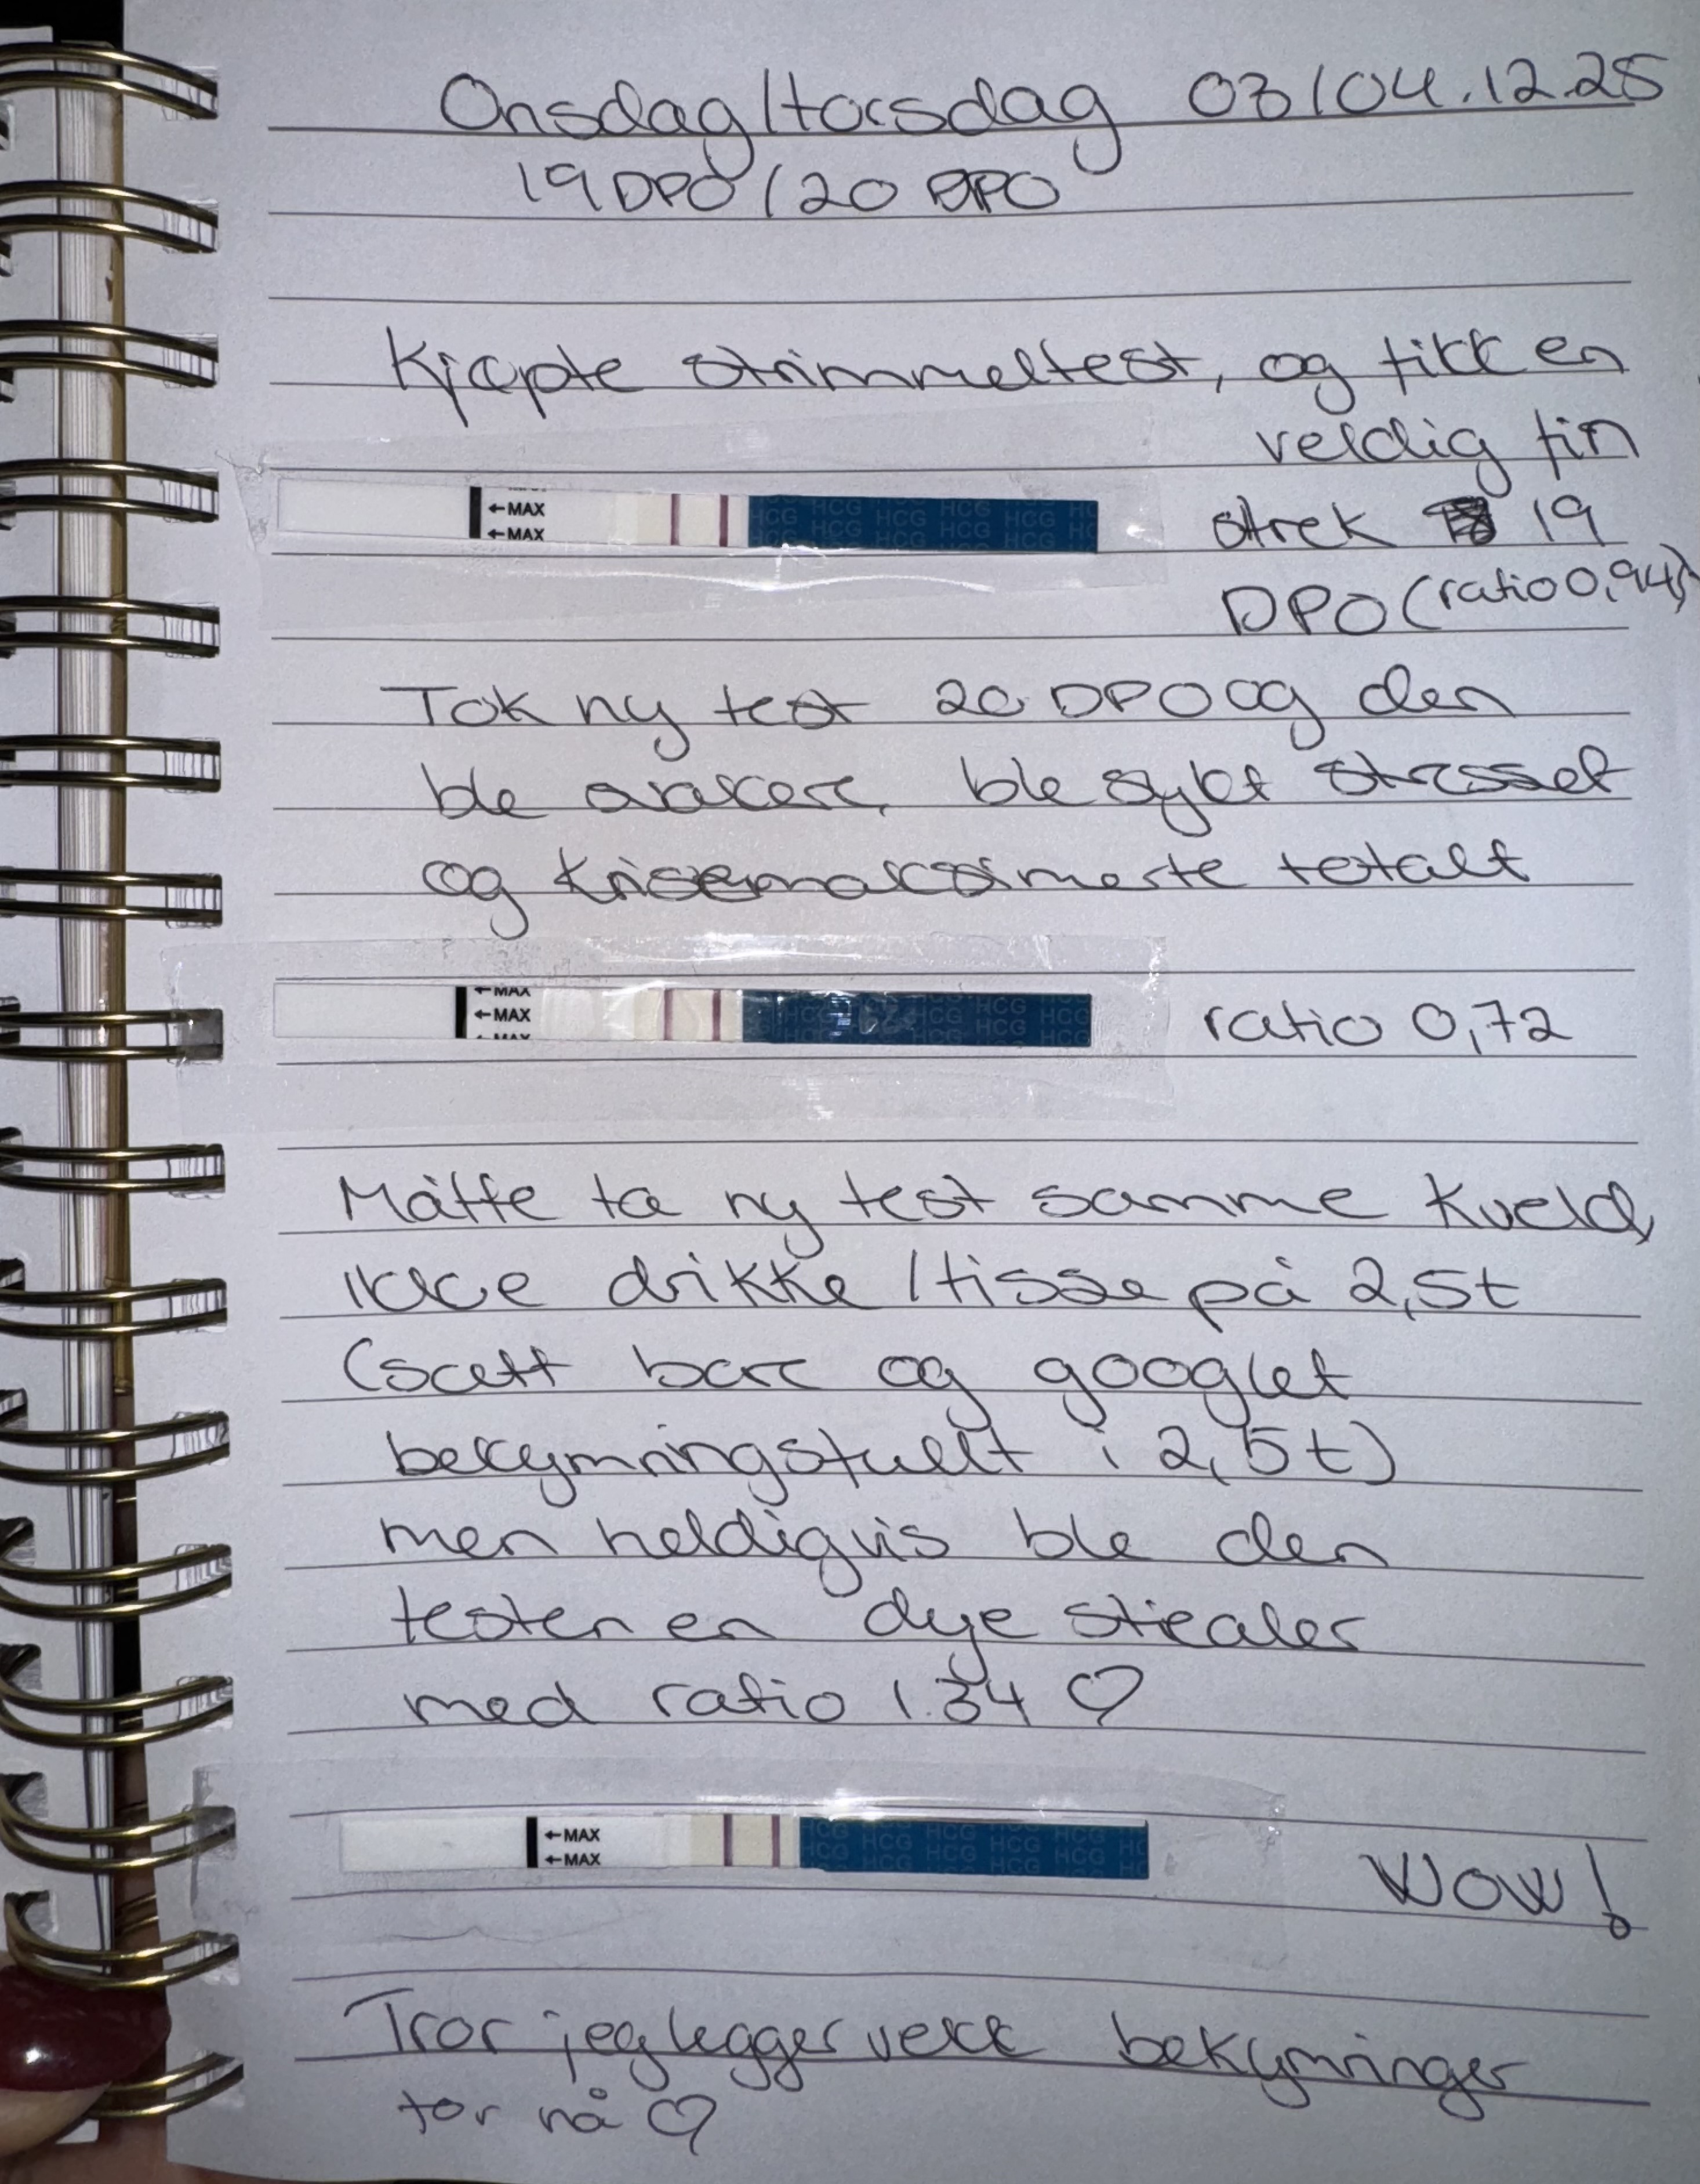 Onsdag/torsdag 03/04.12.25
19 DPO / 20 DPO
Kjøpte strimmeltest, og fikk en
veldig fin
←MAX
←MAX
HCG HCG HCG HCG HCG
HCG HCG HCG HCG HCG
strek 19
DPO (ratio 0,94)
Tok ny test 20 DPO og den
ble svakere, ble sykt stresset
og krisemaksimerte totalt
←MAX
←MAX
HCG
HCG HCG
HCG
ratio 0,72
Måtte ta ny test samme kveld,
ikke drikke / tisse på 2,5t
(scatt bare og googlet
bekymringsfullt i 2,5t)
men heldigvis ble den
testen en dye stealer
med ratio 1.34 ♡
←MAX
←MAX
HCG HCG HCG HCG HCG
HCG HCG HCG HCG
WOW!
Tror jeg legger vekk bekymringer
for nå ♡